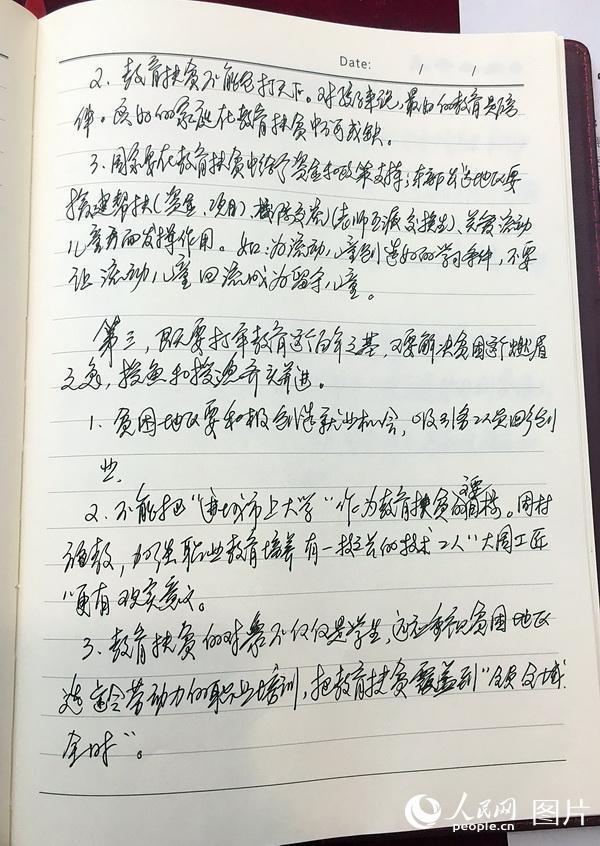 Date: / /
2、教育扶贫不能包打天下。对孩子来说，最好的教育是陪
伴。良好的家庭在教育扶贫中不可或缺。
3、国家要在教育扶贫中给予资金和政策支撑；东部发达地区要
搭建帮扶（资金、项目）、校际交流（老师互派交换生）、关爱流动
儿童方面发挥作用。如：为流动儿童创造好的学习条件，不要
让流动儿童回流成为留守儿童。
第三，既要打牢教育这个百年之基，又要解决贫困这个燃眉
之急，授鱼和授渔齐头并进。
1、贫困地区要积极创造就业机会，吸引务工人员回乡创
业。
2、不能把“进城市上大学”作为教育扶贫的主要目标。因材
施教，加强职业教育培养有一技之长的技术工人“大国工匠
”更有现实意义。
3、教育扶贫的对象不仅仅是学生，还应重视贫困地区
适龄劳动力的职业培训，把教育扶贫覆盖到“全员全域
全时”。
人民网 图片
people.cn